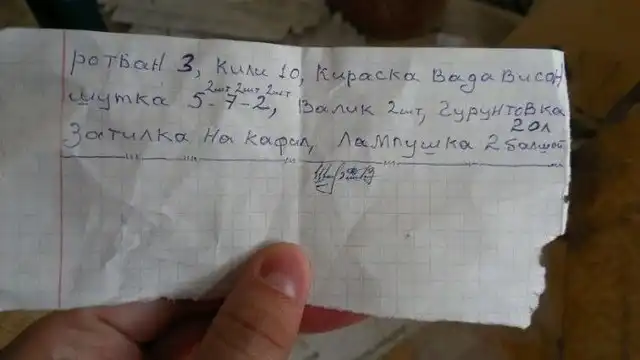 ротбан 3, кили 10, Кираска Вада Висон
шутка 5-7-2, Валик 2шт, Гурунтовка
2шт 2шт 2шт
20л
Затилка на кафил, Лампушка 2 балшой